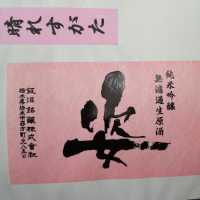 晴れすがた
純米吟醸
無濾過生原酒
姿
飯沼銘醸株式会社
栃木県栃木市西方町元八五〇